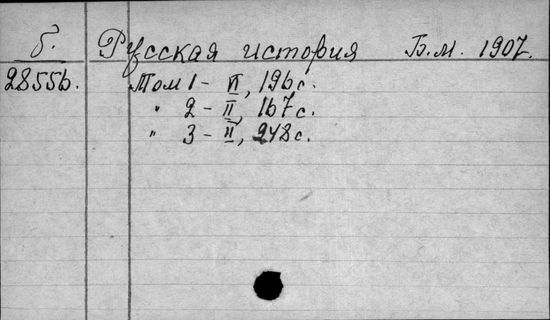 б. Русская история Б.м. 1907.
28556. Том 1 - VI, 196 с.
" 2 - II, 167 с.
" 3 - II, 248 с.